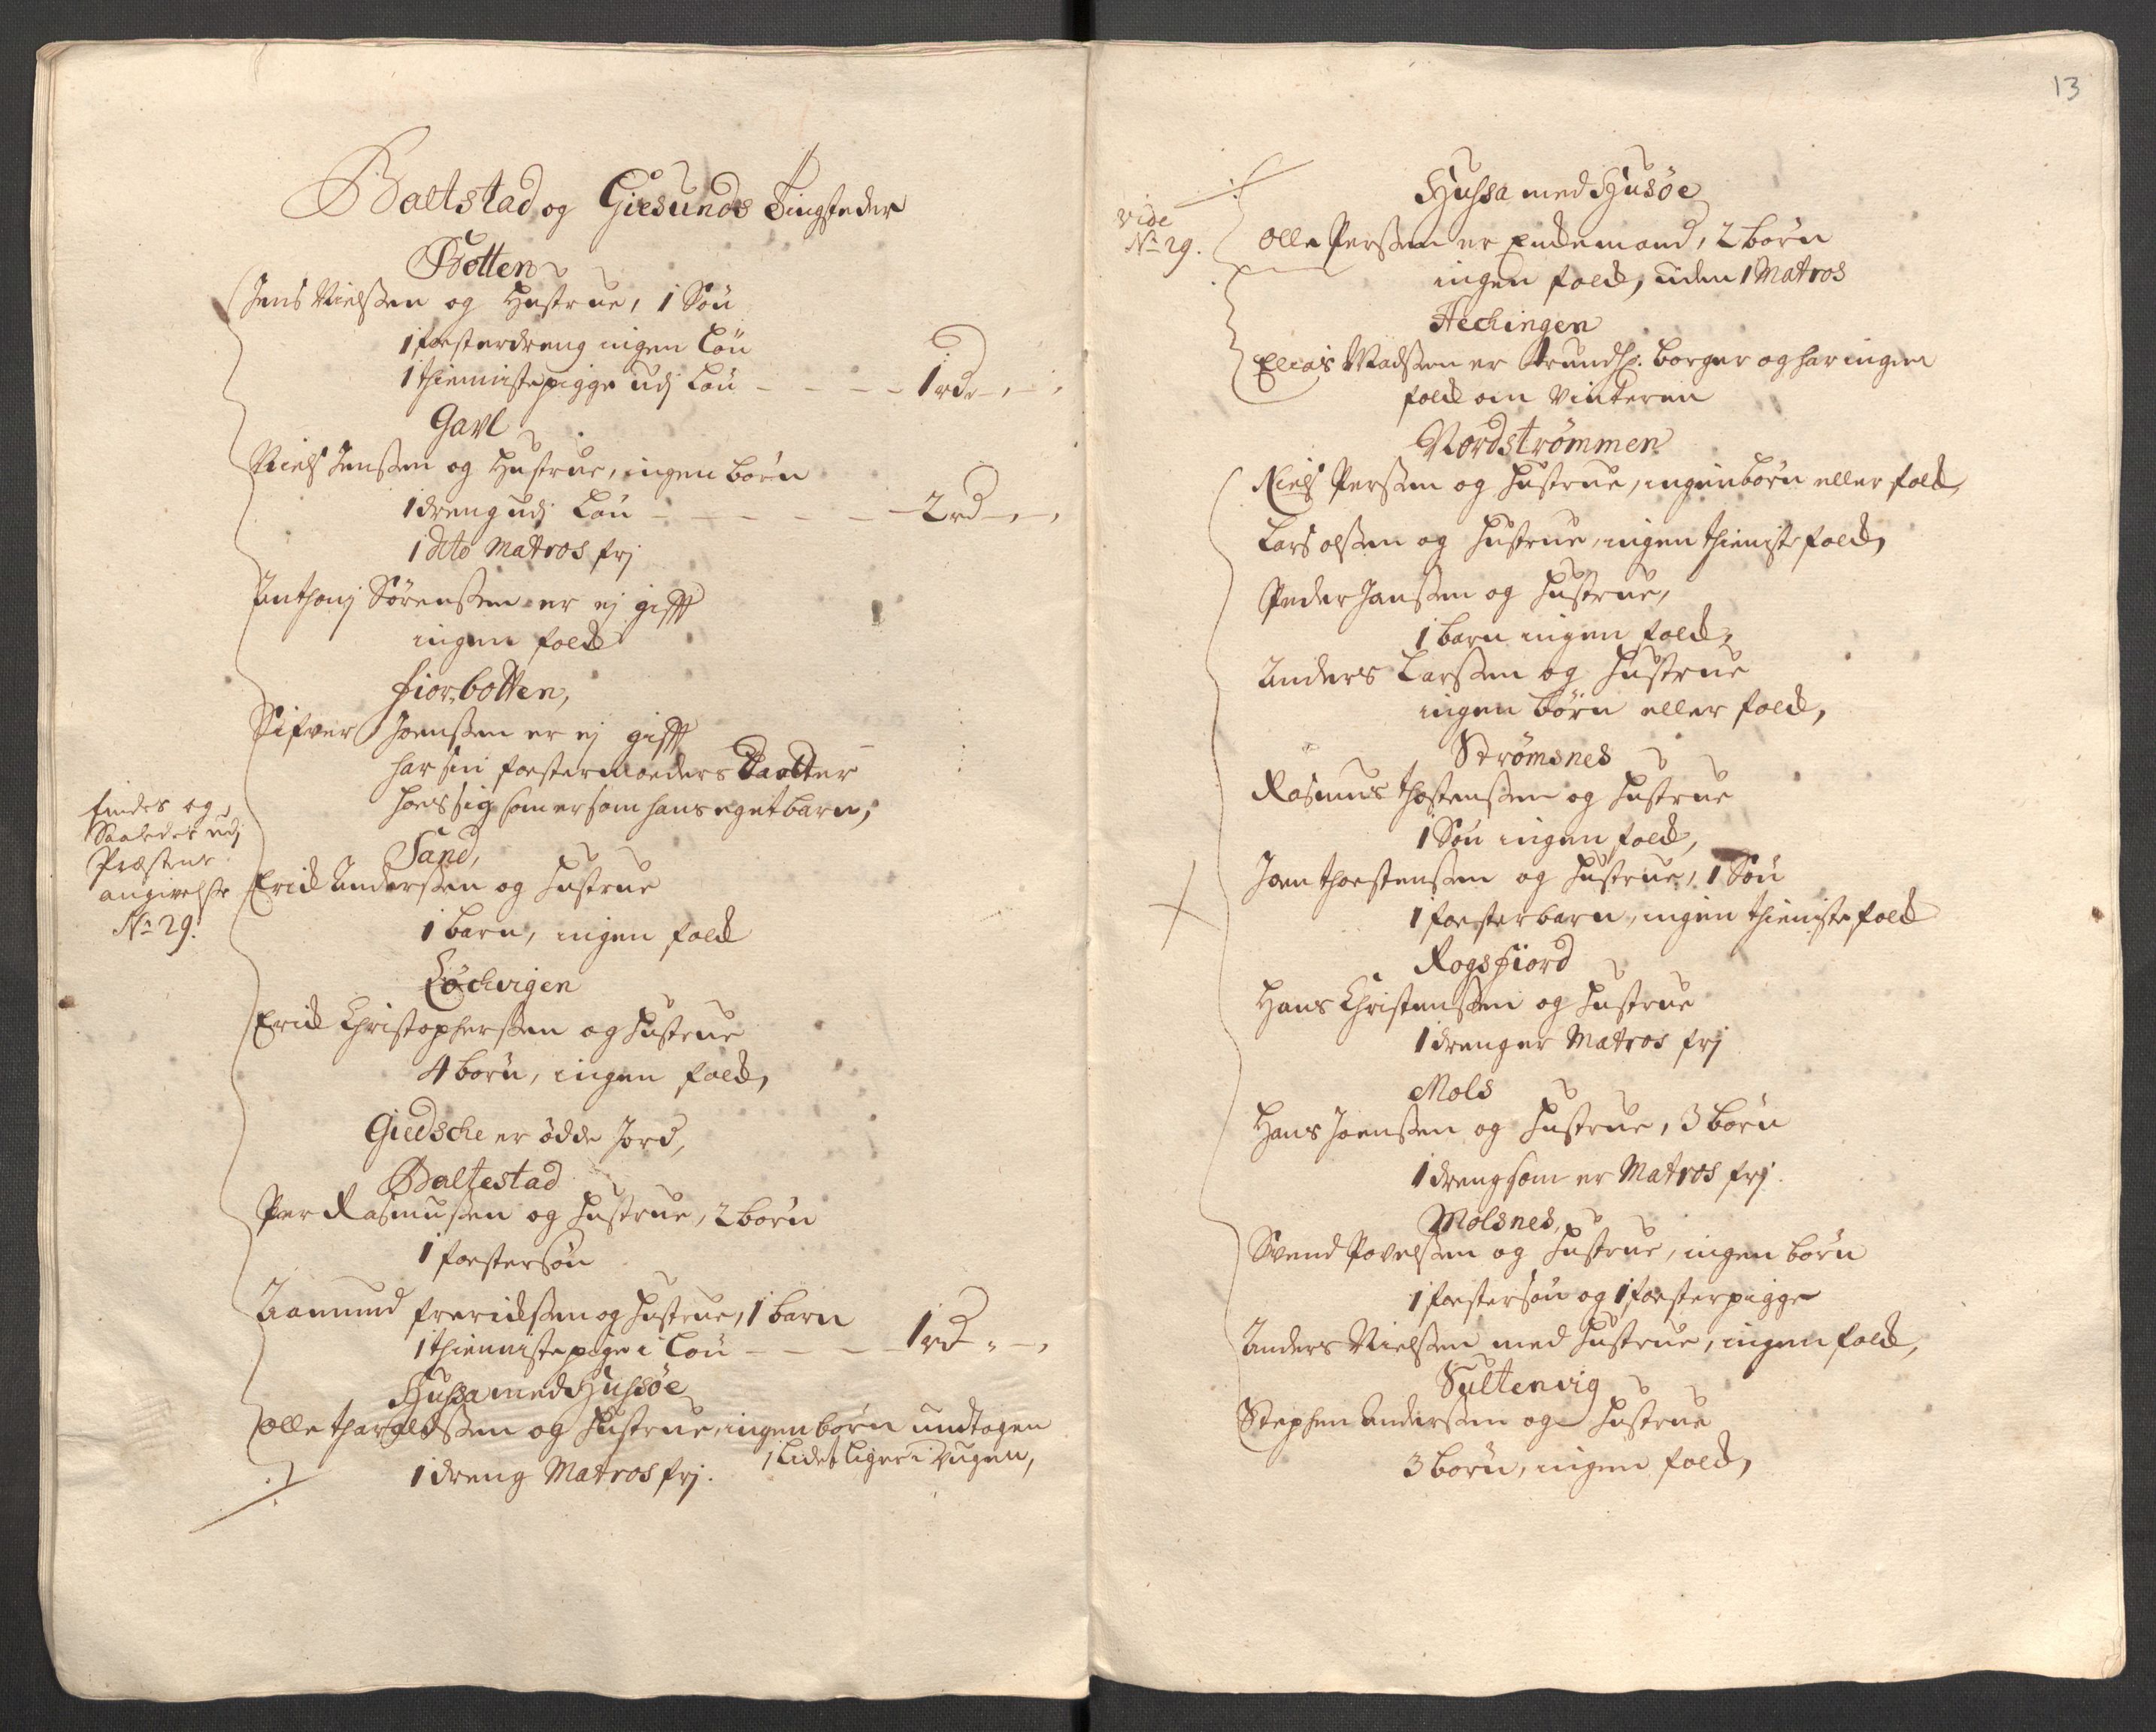 Baltstad og Giesunds Tingsteder
Botten
Jens Nielssen og Hustrue, 1 Søn
1 fosterdreng ingen Løn
1 thienistepigge udj Løn - - - - 1 rd - , - ,
Gavl
Niels Jenssen og Hustrue, ingen børn
1 dreng udj Løn - - - - - 2 rd - , - ,
1 dito Matros frj
Anthonj Sørenssen er ej gifft
ingen folck
fiorbotten,
Sifver Joenssen er ej gifft
har sin fostermoders Daatter
hos sig som er som hans eget barn,
findes og
Saaledes udj
Præstens
angivelsse
No 29.
Sand,
Erick Anderssen og Hustrue
1 barn, ingen folck
Løchvigen
Erick Christopherssen og Hustrue
4 børn, ingen folck,
Giedsche er ødde Jord,
Baltestad
Per Rasmussen og Hustrue, 2 børn
1 fostersøn
Aamund frerickssen og Hustrue, 1 barn
1 thienistepige i Løn - - - 1 rd „ - ,
Hussa med Hussøe
Olle Tharaldssen og Hustrue, ingen børn undtagen
1 lidet liger i Vugen,
1 dreng Matros frj.
13
Hussa med Husøe
vide
No 29.
Olle Perssen er Enckemand, 2 børn
ingen folck, uden 1 Matros
Hechingen
Elias Madssen er trundhs: borger og har ingen
folck om Vinteren
Nordstrømmen
Niels Perssen og Hustrue, ingen børn eller folck,
Lars olssen og Hustrue, ingen thienistefolck,
Peder Hanssen og Hustrue,
1 barn ingen folck,
Anders Larssen og Hustrue
ingen børn eller folck,
Strømsnes
Rasmus Thostenssen og Hustrue
1 Søn ingen folck,
Joen Thorstenssen og Hustrue, 1 Søn
1 fosterbarn, ingen thienistefolck
Rogsfiord
Hans Christenssen og Hustrue
1 dreng er Matros frj
Mols
Hans Joenssen og Hustrue, 3 børn
1 dreng som er Matros frj.
Molsnes,
Svend Povelssen og Hustrue, ingen børn
1 fostersøn og 1 fosterpigge
Anders Nielssen med Hustrue, ingen folck,
Sultenvig
Stephen Anderssen og Hustrue
3 børn, ingen folck,